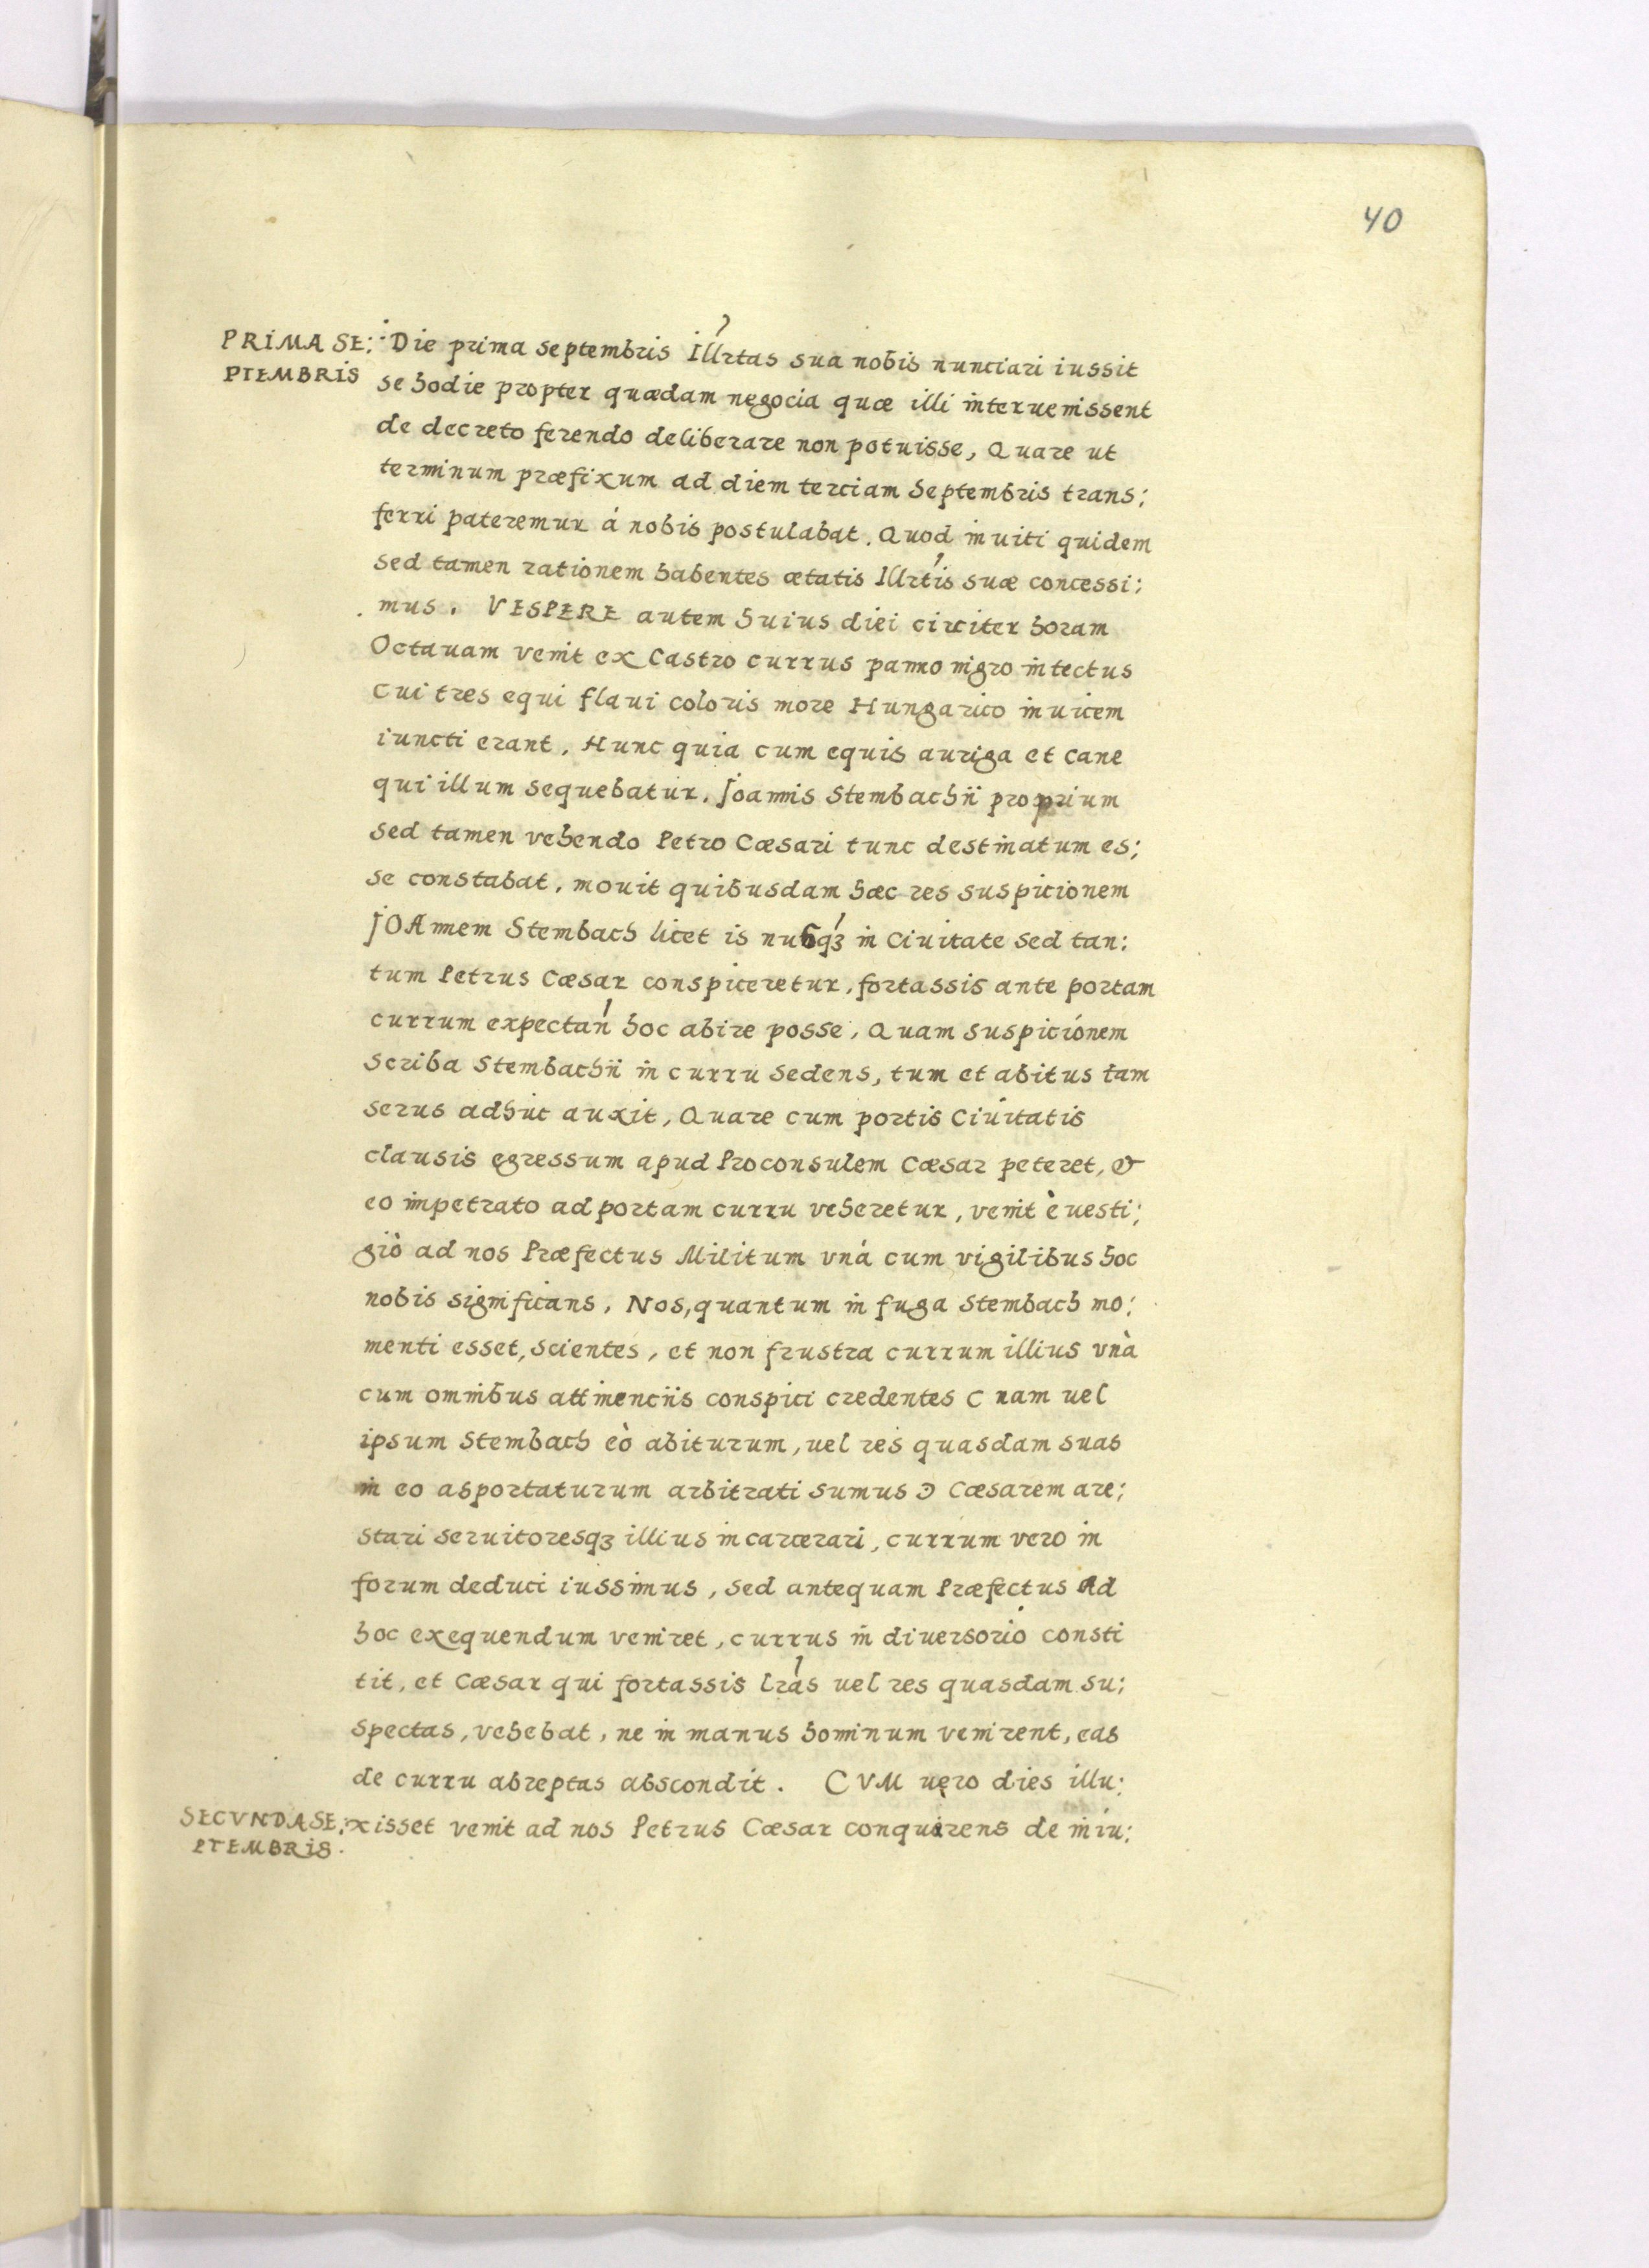 40
PRIMA SE:
PTEMBRIS
Die prima septembris Illrtas sua nobis nunciari iussit
se hodie propter quædam negocia quæ illi interuenissent
de decreto ferendo deliberare non potuisse, Quare ut
terminum præfixum ad diem terciam Septembris trans:
ferri pateremur á nobis postulabat. Quod inuiti quidem
sed tamen rationem habentes ætatis Illrtis suæ concessi:
mus. VESPERE autem huius diei circiter horam
Octauam venit ex Castro currus panno nigro intectus
cui tres equi flaui coloris more Hungarico inuicem
iuncti erant. Hunc quia cum equis auriga et cane
qui illum sequebatur. Joannis Stembachii proprium
sed tamen vehendo Petro Cæsari tunc destinatum es:
se constabat, mouit quibusdam hæc res suspicionem
JOAnnem Stembach licet is nusqꝫ in Ciuitate sed tan:
tum Petrus Cæsar conspiceretur, fortassis ante portam
currum expectan hoc abire posse, Quam suspicionem
Scriba Stembachii in curru sedens, tum et abitus tam
serus adhuc auxit, Quare cum portis Ciuitatis
clausis egressum apud Proconsulem Cæsar peteret, &
eo impetrato ad portam curru veheretur, venit è uesti:
giò ad nos Præfectus Militum vná cum vigilibus hoc
nobis significans. Nos, quantum in fuga Stembach mo:
menti esset, scientes, et non frustra currum illius vnà
cum omnibus attinenciis conspici credentes C nam uel
ipsum Stembach eò abiturum, uel res quasdam suas
in eo asportaturum arbitrati sumus Ɔ Cæsarem are:
stari seruitoresqꝫ illius incarcerari, currum vero in
forum deduci iussimus, sed antequam Præfectus Ad
hoc exequendum veniret, currus in diuersorio consti
tit, et Cæsar qui fortassis lras uel res quasdam su:
spectas, vehebat, ne in manus hominum venirent, eas
de curru abreptas abscondit. CVM uero dies illu:
SECVNDA SE:
PTEMBRIS.
xisset venit ad nos Petrus Cæsar conquirens de iniu: